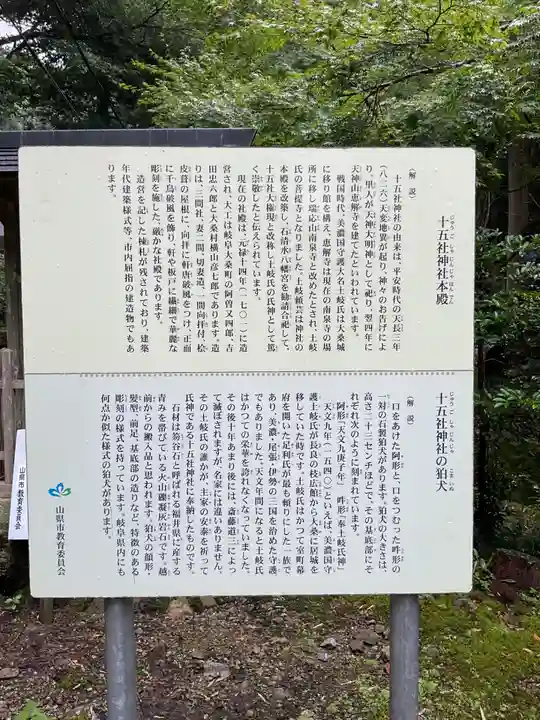 十五社神社本殿
じゅうごしゃじんじゃほんでん
(解説)
十五社神社の由来は、平安時代の天長三年
(八二六)天変地異が起り、神々のお告げによ
り、里人が天神大明神として祀り、翌四年に
天神山恵解寺を建てたといわれています。
戦国時代、美濃国守護大名土岐氏は大桑城
に移り館を構え、恵解寺は現在の南泉寺の場
所に移し瑞応山南泉寺と改めたとされ、土岐
氏の菩提寺となりました。土岐頼芸は神社の
本殿を改築し、石清水八幡宮を勧請合祀して、
十五社大権現と改称し土岐氏の氏神として篤
く崇敬したと伝えられています。
現在の社殿は、元禄十四年(一七〇一)に造
営され、大工は岐阜大桑町の阿曽又四郎、吉
田忠六郎と大桑村横山彦七郎であります。造
りは、三間社・妻二間、切妻造、一間向拝付、桧
皮葺の屋根に、向拝に軒唐破風をつけ、正面
に千鳥破風を飾り、軒や板戸に繊細で華麗な
彫刻を施した、厳かな社殿であります。
造営を記した棟札が残されており、建築
年代建築様式等、市内屈指の建造物でもあ
ります。
十五社神社の狛犬
じゅうごしゃじんじゃ こまいぬ
(解説)
口をあけた阿形と、口をつむった吽形の
一対の石製狛犬があります。狛犬の大きさは、
高さ二十三センチほどで、その基底部にそ
れぞれ次のように刻まれています。
阿形「天文九庚子年」 吽形「奉土岐氏神」
天文九年(一五四〇)といえば、美濃国守
護土岐氏が長良の枝広館から大桑に居城を
移していた時です。土岐氏はかつて室町幕
府を開いた足利氏が最も頼りにした一族で
あり、美濃・尾張・伊勢の三国を治めた守護
でもありました。天文年間になると土岐氏
はかつての栄華を誇れなくなっていました。
その後十年あまり後には、斎藤道三によっ
て滅ぼされますが、名家には違いありません。
その土岐氏の誰かが、主家の安泰を祈って
氏神である十五社神社に奉納したものです。
石材は笏谷石と呼ばれる福井県に産する
青みを帯びている火山礫凝灰岩石です。越
前からの搬入品と思われます。狛犬の顔形・
髪型、前足、基底部の造りなど、特徴のある
彫刻の様式を持っています。岐阜県内にも
何点か似た様式の狛犬があります。
山県市教育委員会
山県市教育委員会